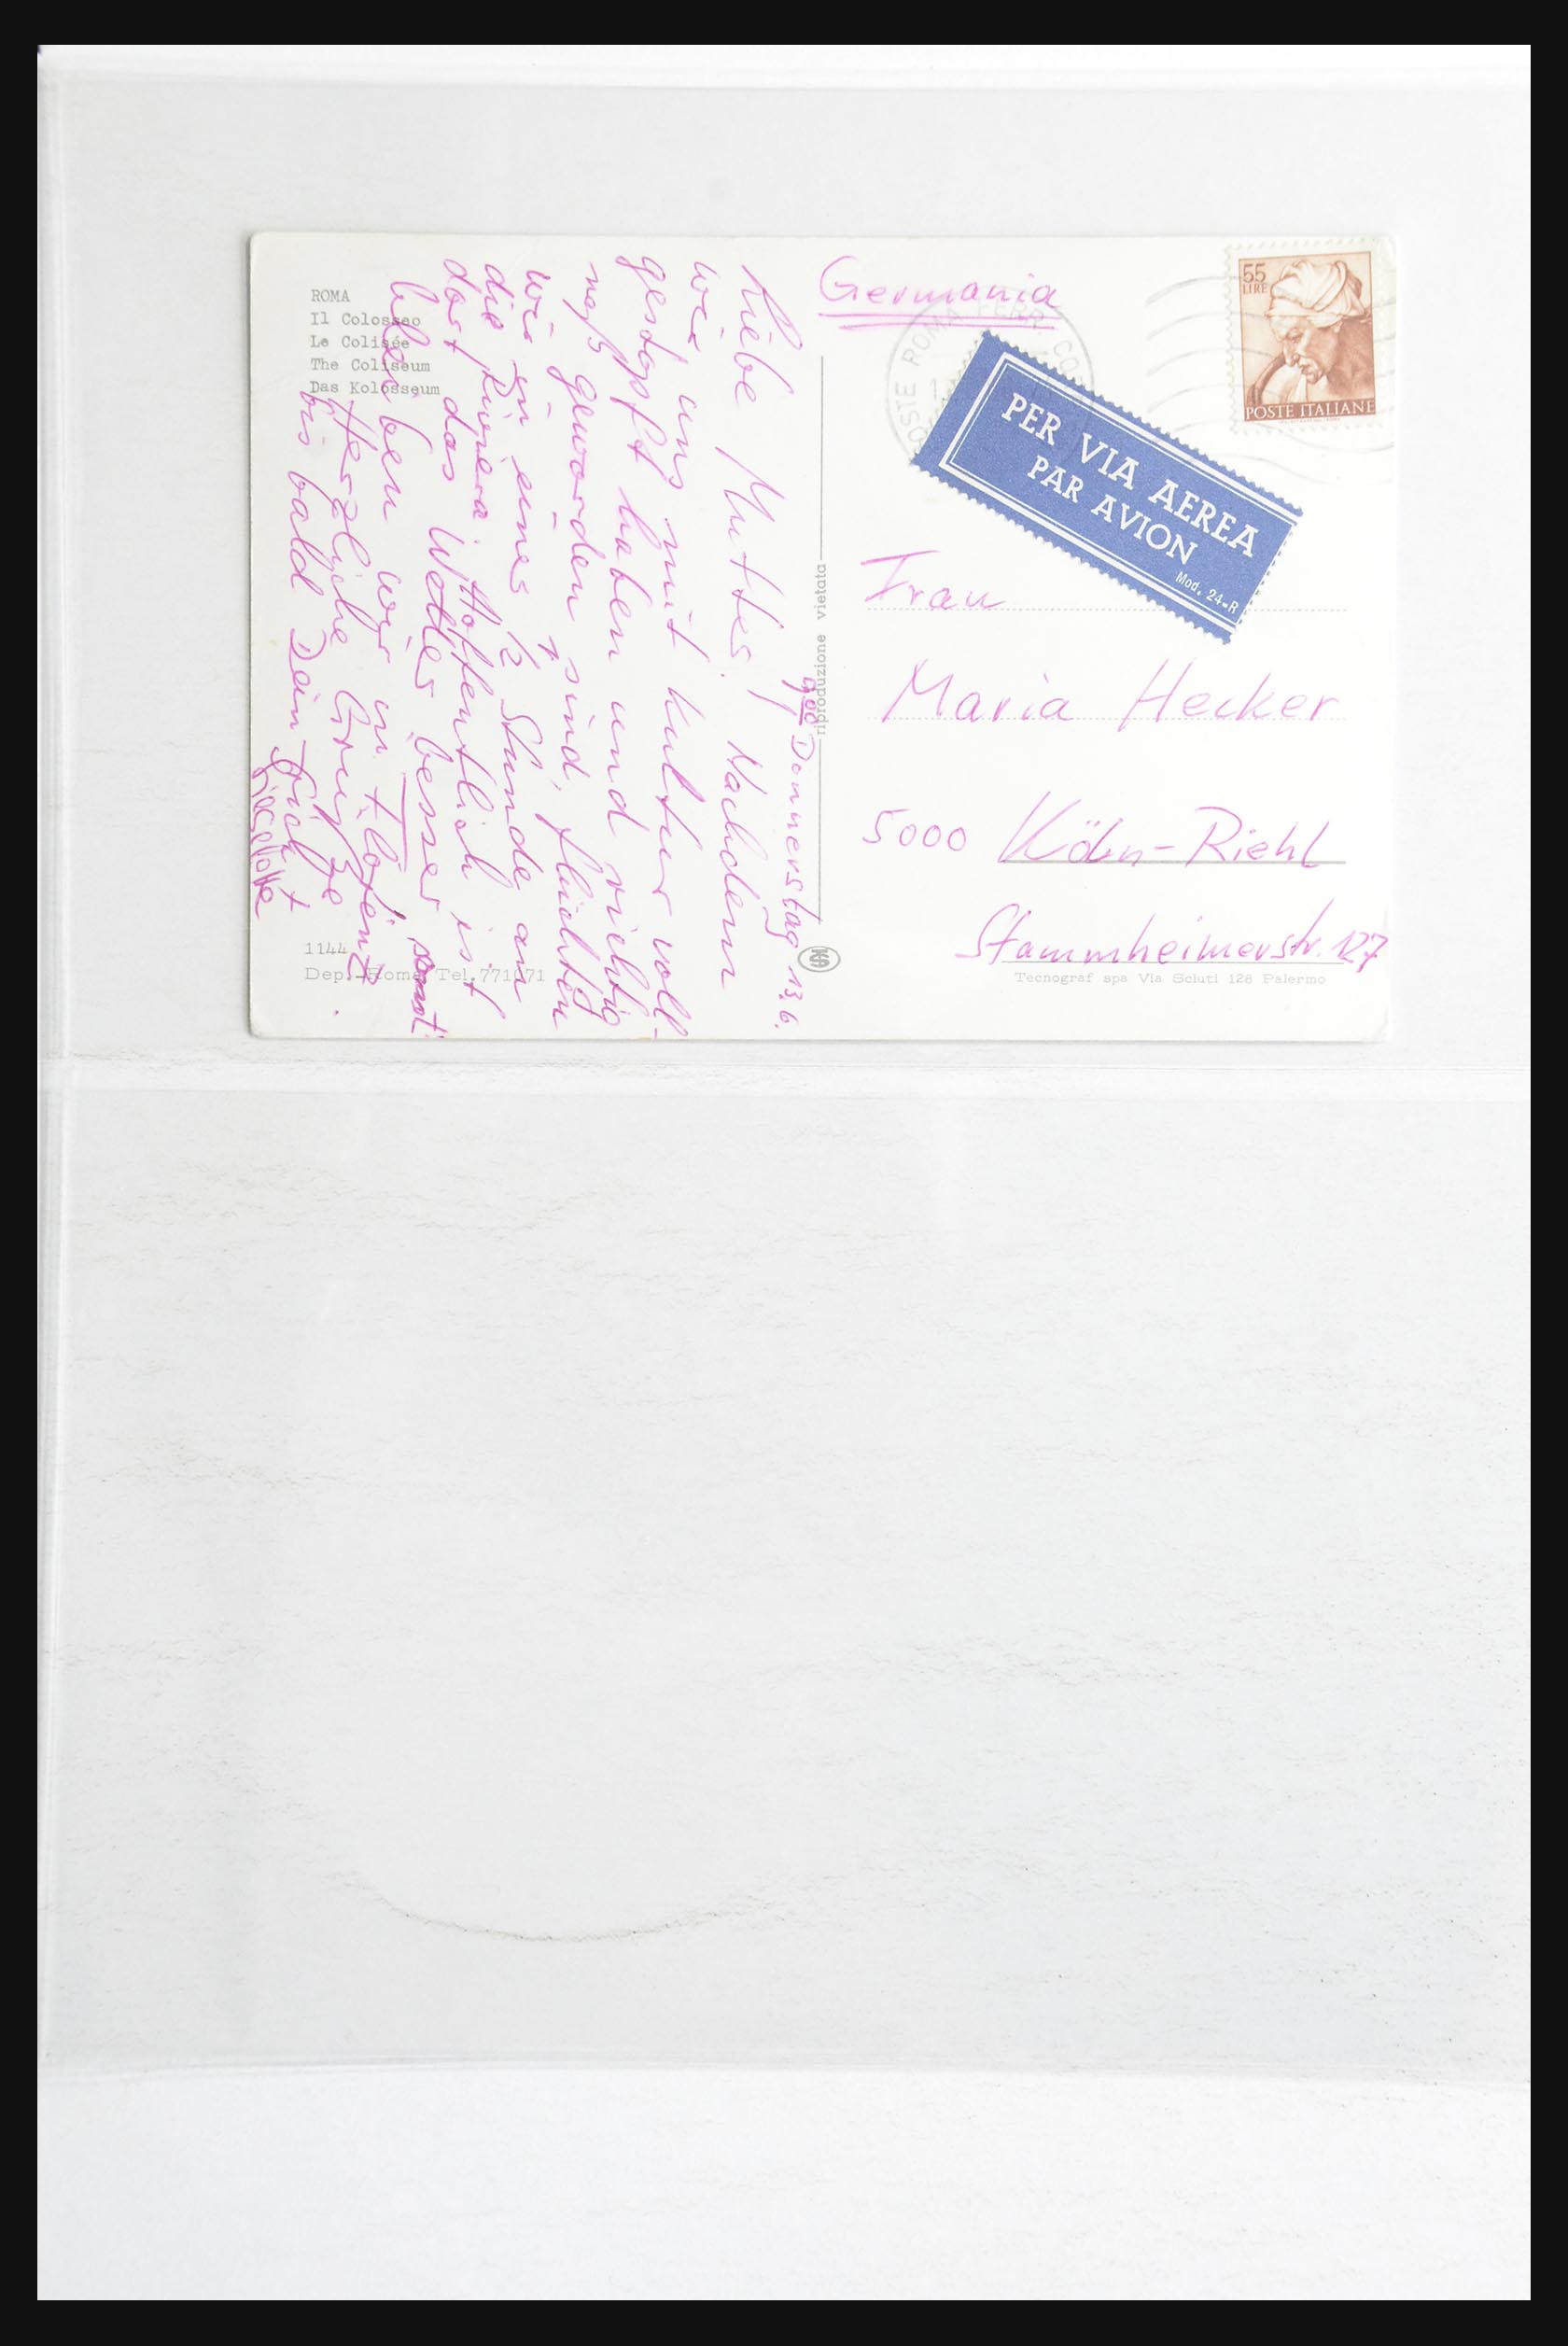 ROMA
Il Colosseo
Le Colisée
The Coliseum
Das Kolosseum
9.00 Donnerstag 13.6.
Liebe Mutter! Nachdem
wir uns mit Kultur voll-
gestopft haben und richtig
naß geworden sind, flüchten
wir in einer ½ Stunde an
die Riviera. Hoffentlich ist
dort das Wetter besser, sonst
bleiben wir in Florenz.
Herzliche Grüße
bis bald Dein
Liselotte
1144
Dep. Roma Tel. 771071
riproduzione vietata
Germania
POSTE ROMA FERR. CO
55
LIRE
POSTE ITALIANE
PER VIA AEREA
PAR AVION
Mod. 24-R
Frau
Maria Hecker
5000 Köln-Riehl
Stammheimerstr. 127
Tecnograf spa Via Sciuti 128 Palermo